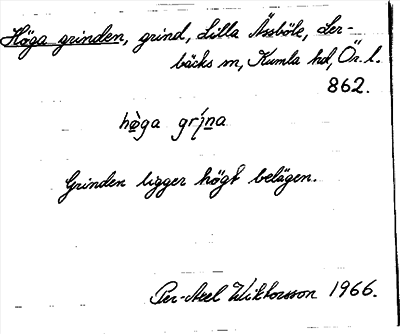 Höga grinden, grind, Lilla Åssböle, Ler-
bäcks sn, Kumla hd, Ör. l.
862.
hø̀ga grı́na
Grinden ligger högt belägen.
Per-Axel Wiktorsson 1966.